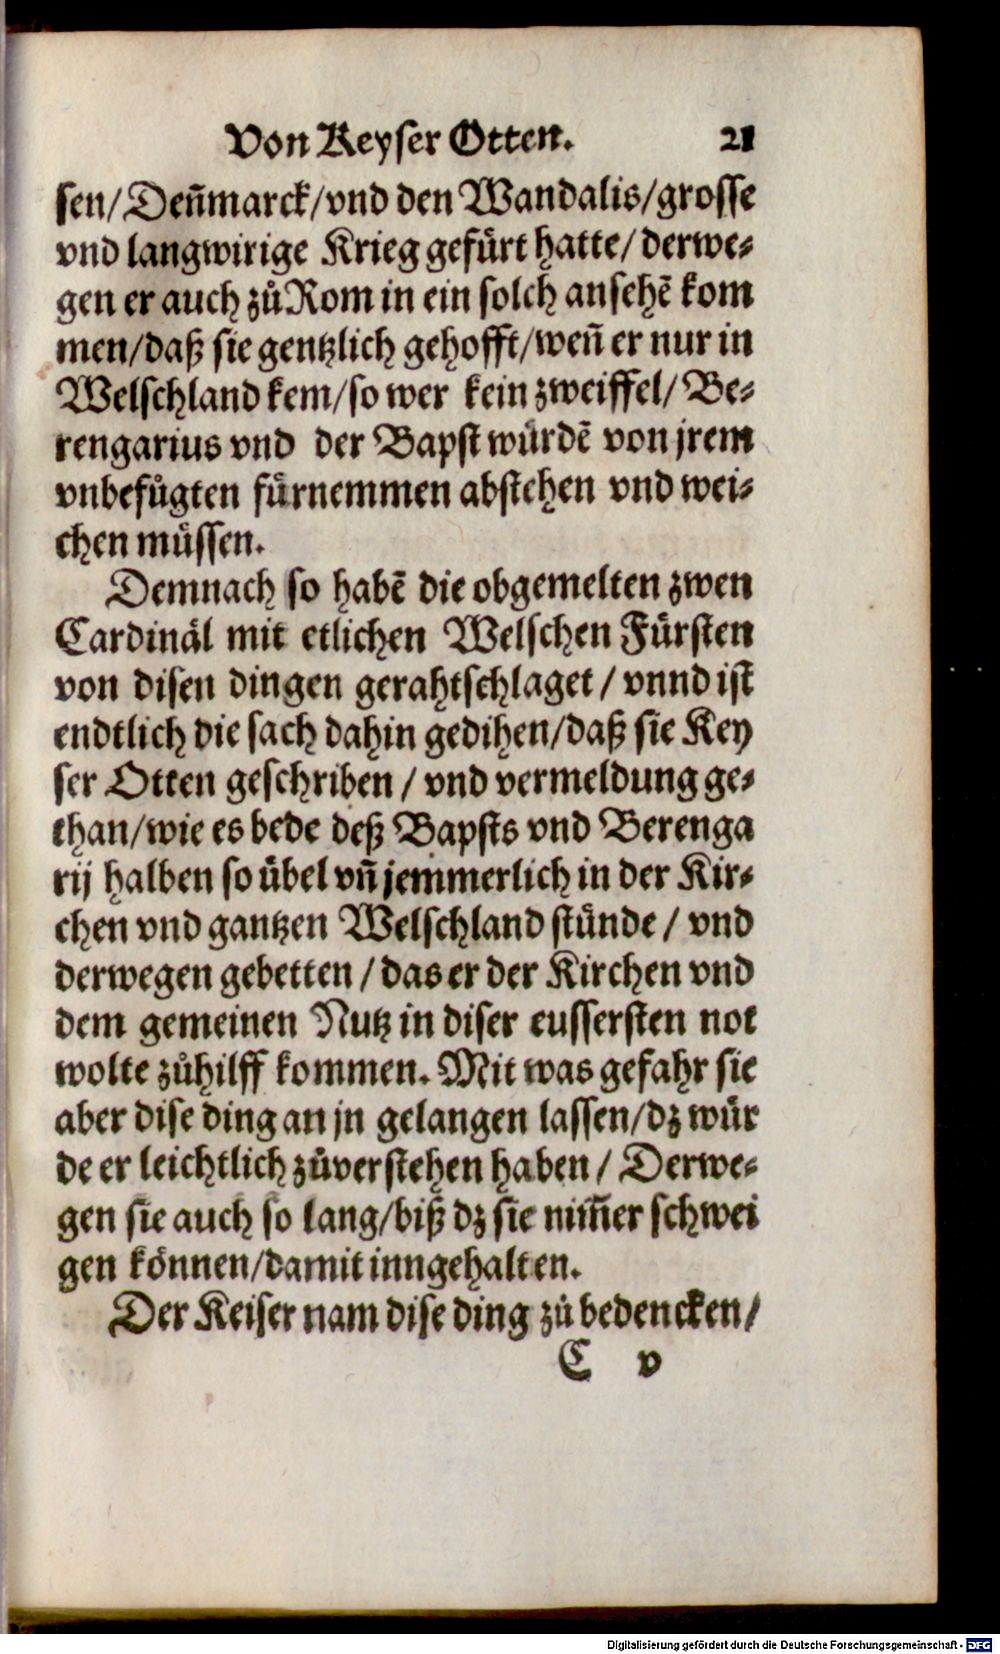 Von Keyser Otten. 21
sen/ Deñmarck/ vnd den Wandalis/ grosse
vnd langwirige Krieg gefürt hatte/ derwe-
gen er auch zů Rom in ein solch ansehē kom
men/ daß sie gentzlich gehofft/ weñ er nur in
Welschland kem/ so wer kein zweiffel/ Be-
rengarius vnd der Bapst würdē von jrem
vnbefůgten fürnemmen abstehen vnd wei-
chen müssen.
Demnach so habē die obgemelten zwen
Cardinäl mit etlichen Welschen Fürsten
von disen dingen gerahtschlaget/ vnnd ist
endtlich die sach dahin gedihen/ daß sie Key
ser Otten geschriben/ vnd vermeldung ge-
than/ wie es bede deß Bapsts vnd Berenga
rij halben so übel vñ jemmerlich in der Kir-
chen vnd gantzen Welschland stünde/ vnd
derwegen gebetten/ das er der Kirchen vnd
dem gemeinen Nutz in diser eussersten not
wolte zůhilff kommen. Mit was gefahr sie
aber dise ding an jn gelangen lassen/ dz wür
de er leichtlich zůverstehen haben/ Derwe-
gen sie auch so lang/ biß dz sie nim̄er schwei
gen können/ damit inngehalten.
Der Keiser nam dise ding zů bedencken/
C v
Digitalisierung gefördert durch die Deutsche Forschungsgemeinschaft - DFG